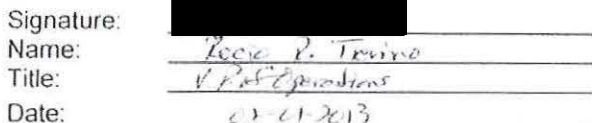 Signature:
Name: Rocio R. Trevino
Title: V P of Operations
Date: